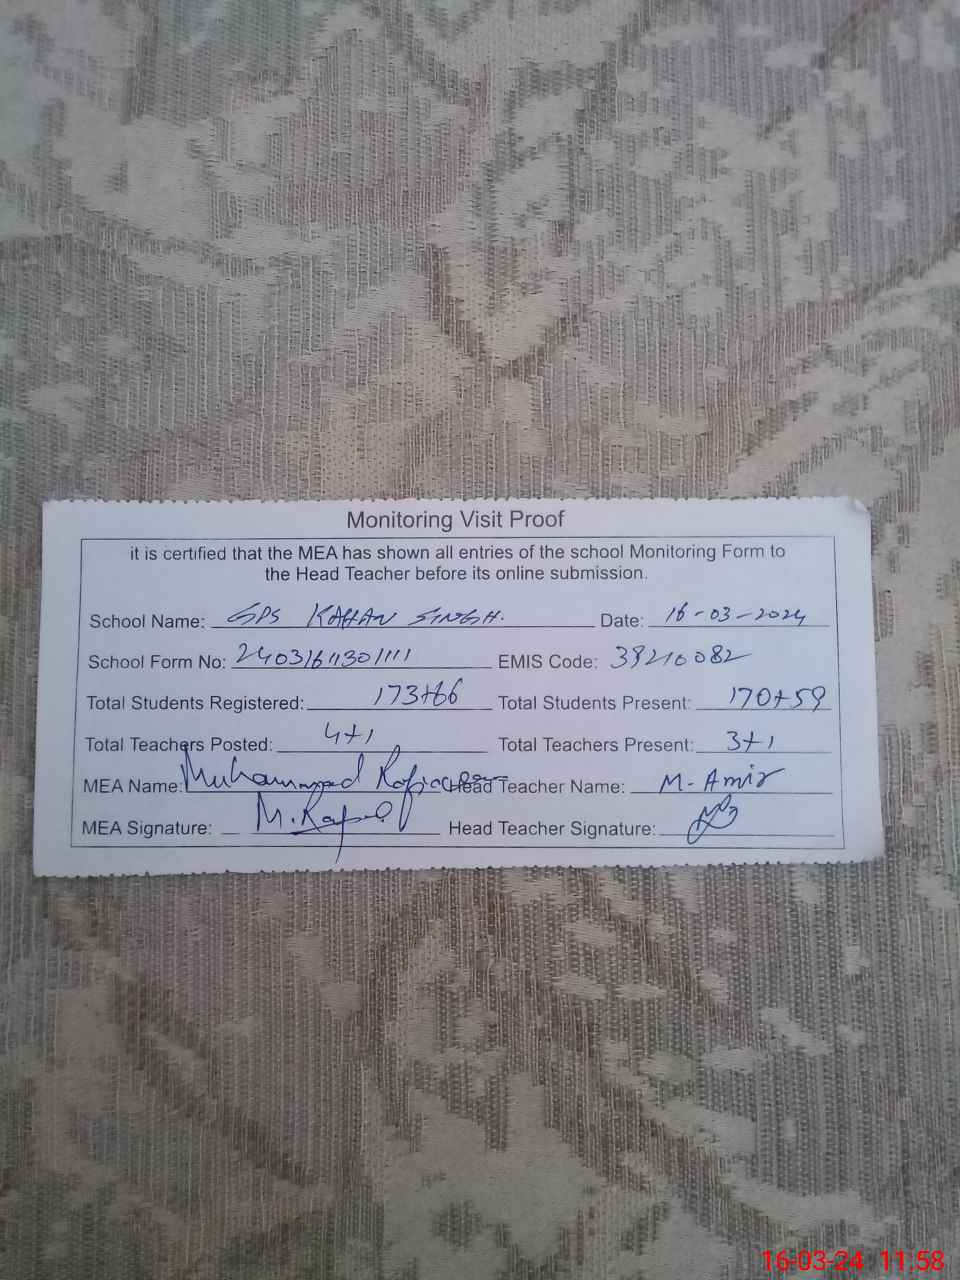 Monitoring Visit Proof
it is certified that the MEA has shown all entries of the school Monitoring Form to
the Head Teacher before its online submission.
School Name: GPS KAHAN SINGH. Date: 16-03-2024
School Form No: 24031611301111 EMIS Code: 38210082
Total Students Registered: 173+66 Total Students Present: 170+59
Total Teachers Posted: 4+1 Total Teachers Present: 3+1
MEA Name: Muhammad Head Teacher Name: M-Amir
MEA Signature: Head Teacher Signature:
16-03-24 11:58